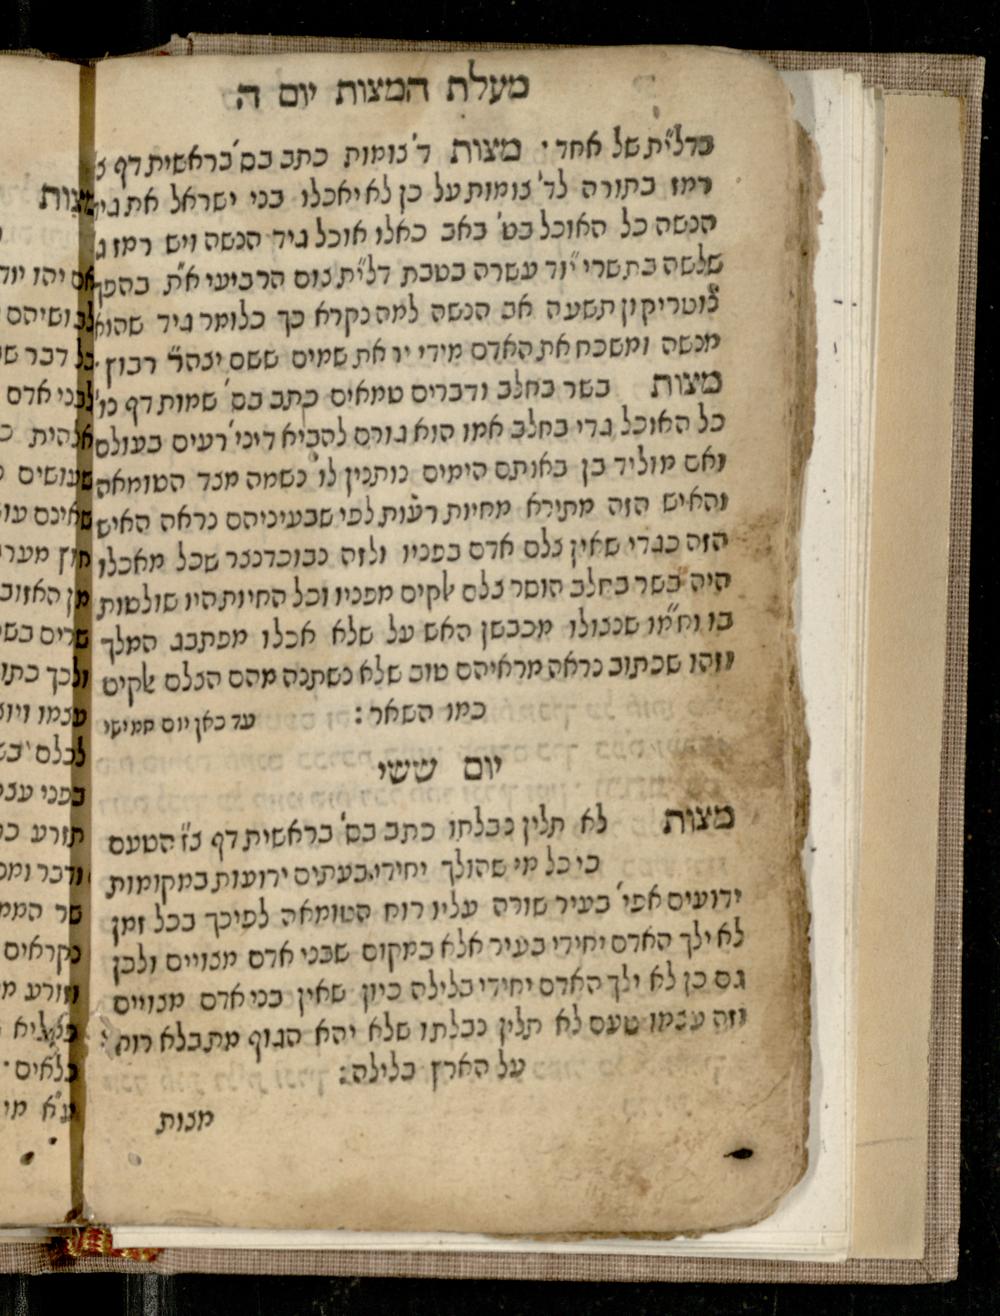 מעלת המצות יום ה
בדל״ת של אחד· מצות ד׳ צומות כתב בס׳ בראשית דף
רמז בתורה לד׳ צומות על כן לא יאכלו בני ישראל את גיד
הנשה כל האוכל בט׳ באב כאלו אוכל גיד הנשה ויש רמז
שלשה בתשרי יו״ד עשרה בטבת דל״ת צום הרביעי א״ת בהפך
נוטריקון תשעה אב הנשה למה נקרא כך כלומר גיד שהוא
מנשה ומשכח את האדם מידי יראת שמים ששם יצה״ר רבוץ·
מצות בשר בחלב ודברים טמאים כתב בס׳ שמות דף
כל האוכל גדי בחלב אמו הוא גורם להביא דיני׳ רעים בעולם
ואם מוליד בן באותם הימים נותנין לו נשמה מצד הטומאה
והאיש הזה מתירא מחיות רעות לפי שבעיניהם נראה האיש
הזה כגדי שאין צלם אדם בפניו ולזה נבוכדנצר שכל מאכלו
היה בשר בחלב הוסר צלם אקים מפניו וכל החיות היו שולטות
בו וחמ״ו שנצולו מכבשן האש על שלא אכלו מפתבג המלך
וזהו שכתוב נראה מראיהם טוב שלא נשתנה מהם הצלם אקים
כמו השאר: עד כאן יום חמישי
יום ששי
מצות לא תלין נבלתו כתב בס׳ בראשית דף הטעם
כי כל מי שהולך יחידי בעתים ידועות במקומות
ידועים אפי׳ בעיר שורה עליו רוח הטומאה לפיכך בכל זמן
לא ילך האדם יחידי בעיר אלא במקום שבני אדם מצויים ולכן
גם כן לא ילך האדם יחידי בלילה כיון שאין בני אדם מצויים
וזה עצמו טעם לא תלין נבלתו שלא יהא הגוף מתבלא רוח
על הארץ בלילה:
מצות
מצות
יהו
דבר
לבני אדם
אלהית
שעושים
שאינם
חוץ
מן האזוב
שרים
ולכך
עצמו
לצלם
בפני
תזרע
ודבר
שר
נקראים
כלאים·
ע״א